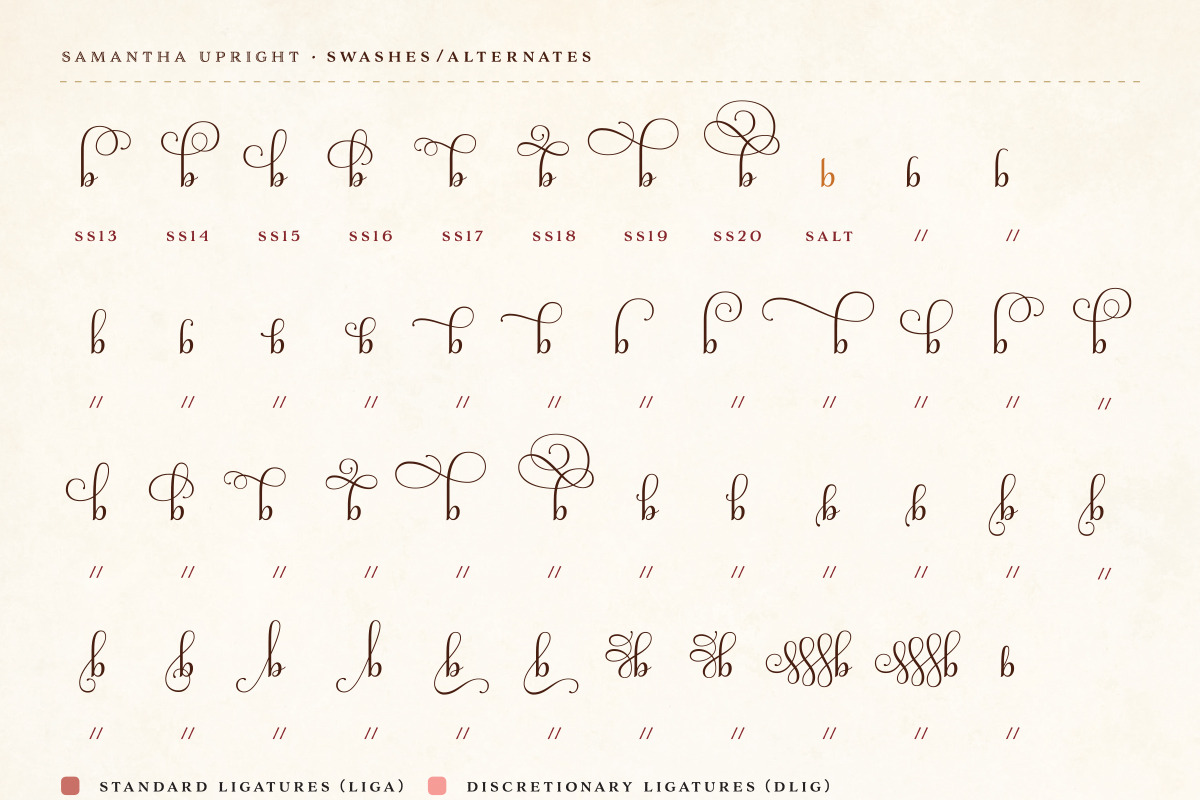 SAMANTHA UPRIGHT · SWASHES/ALTERNATES
b b b b b b b b b b b
SS13 SS14 SS15 SS16 SS17 SS18 SS19 SS20 SALT // //
b b b b b b b b b b b b
// // // // // // // // // // // //
b b b b b b b b b b b b
// // // // // // // // // // // //
b b b b b b b b b b b
// // // // // // // // // // //
STANDARD LIGATURES (LIGA) DISCRETIONARY LIGATURES (DLIG)